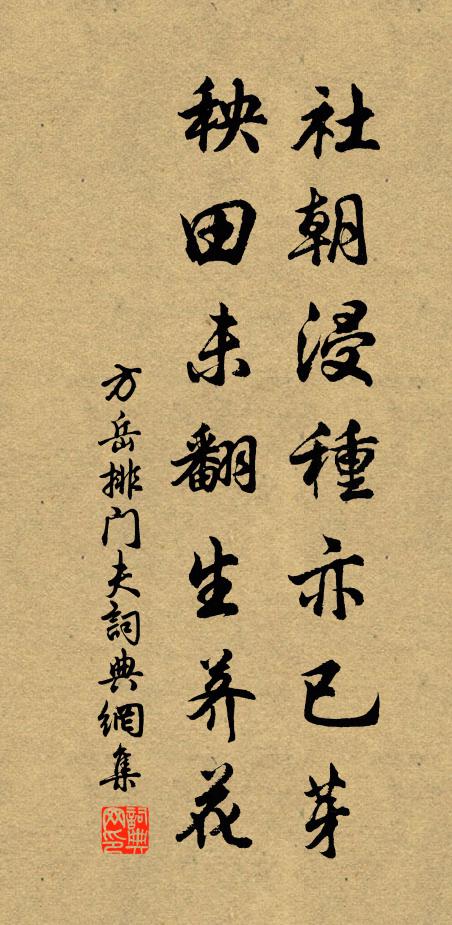 社朝浸種亦已芽
秧田未翻生荠花
方岳排门夫詞典網集
詞典网印